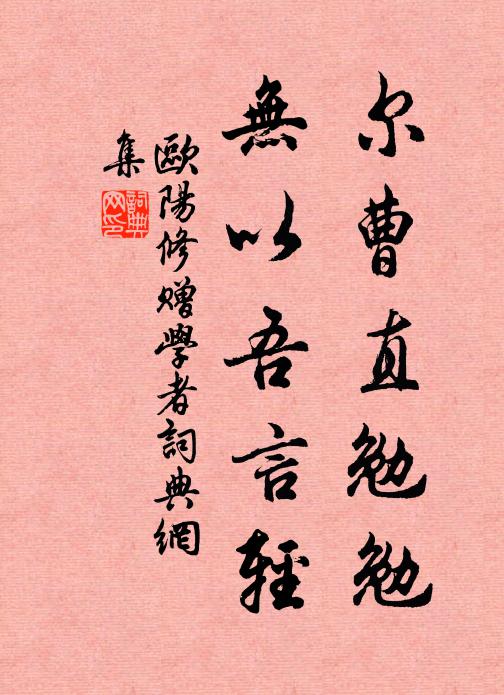 尔曹直勉勉
無以吾言輕
歐陽修赠學者詞典網
集
詞典网印